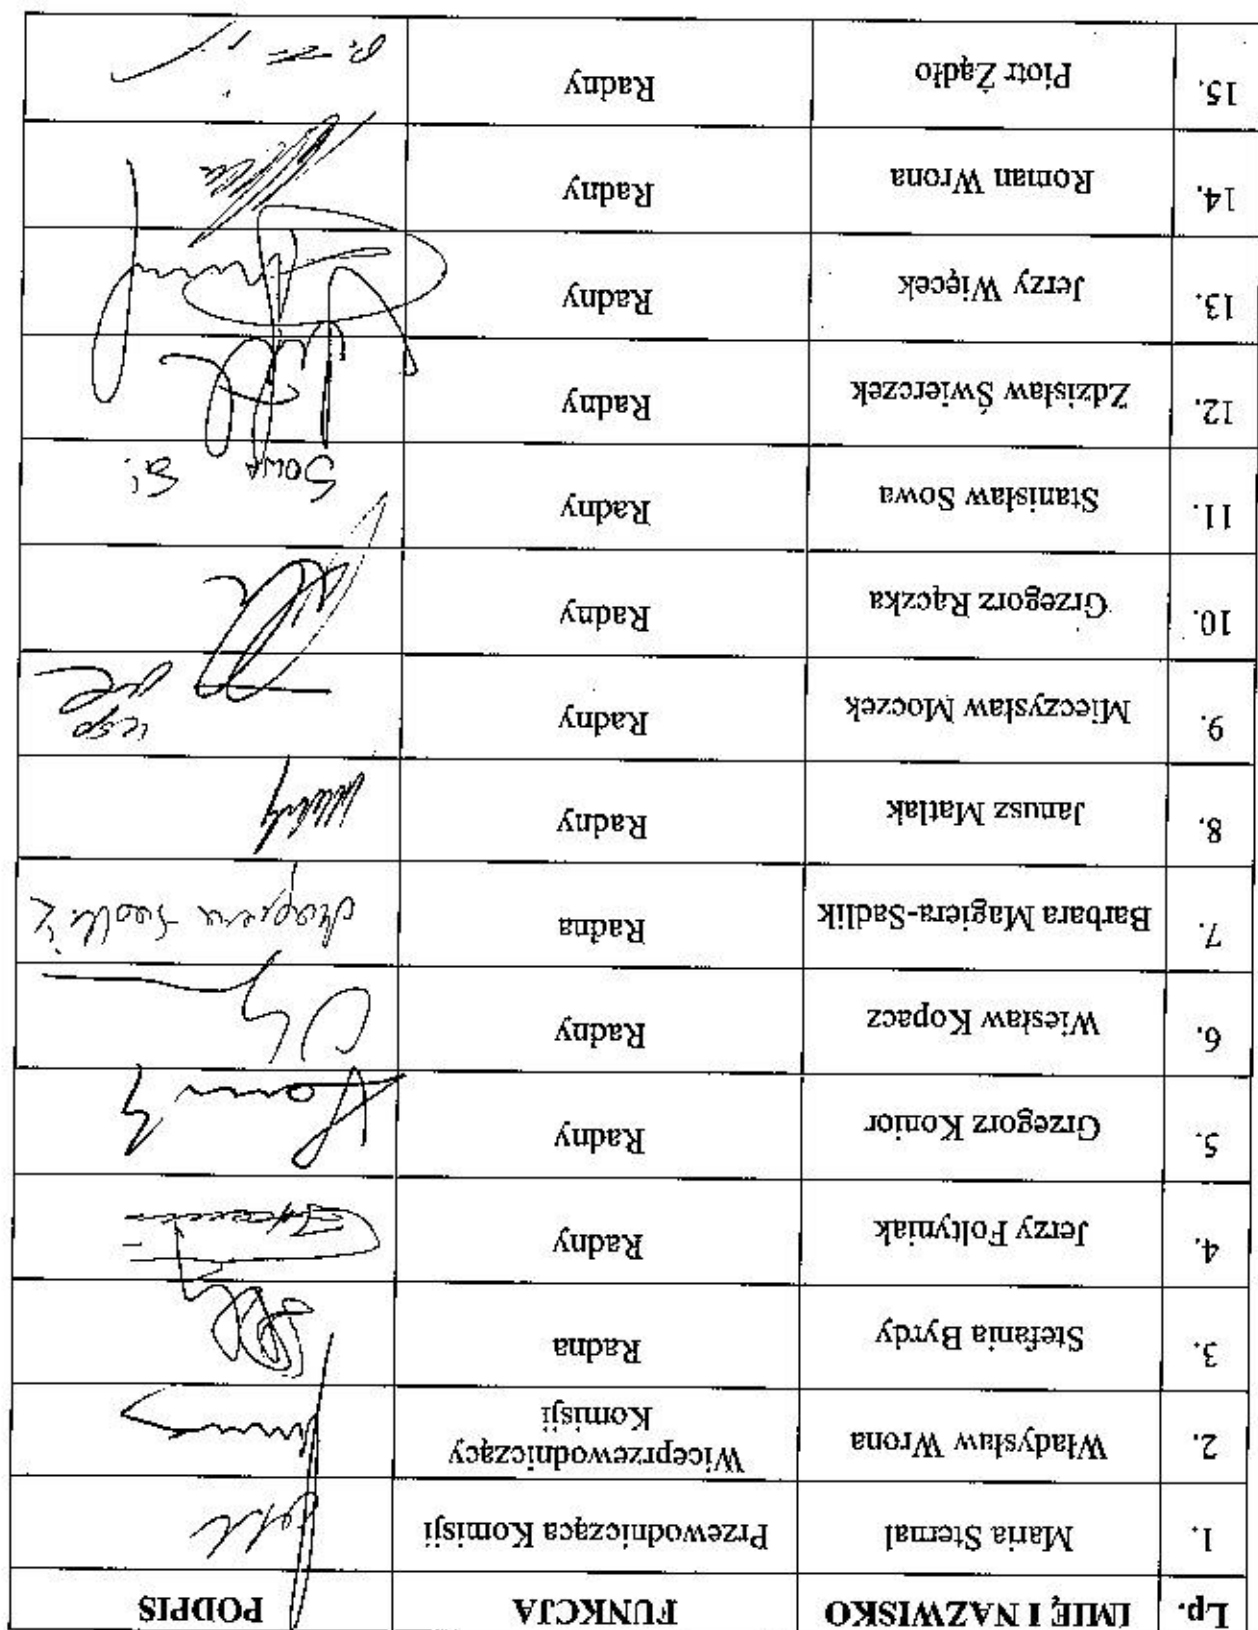 Lp. IMIĘ I NAZWISKO FUNKCJA PODPIS
1. Maria Sternal Przewodnicząca Komisji
2. Władysław Wrona Wiceprzewodniczący
Komisji
3. Stefania Byrdy Radna
4. Jerzy Foltyniak Radny
5. Grzegorz Komor Radny
6. Wiesław Kopacz Radny
7. Barbara Magiera-Sadlik Radna Magiera
8. Janusz Matlak Radny
9. Mieczysław Moczek Radny
10. Grzegorz Rączka Radny
11. Stanisław Sowa Radny SOWA
12. Zdzisław Świerczek Radny
13. Jerzy Więcek Radny
14. Roman Wrona Radny
15. Piotr Żądło Radny